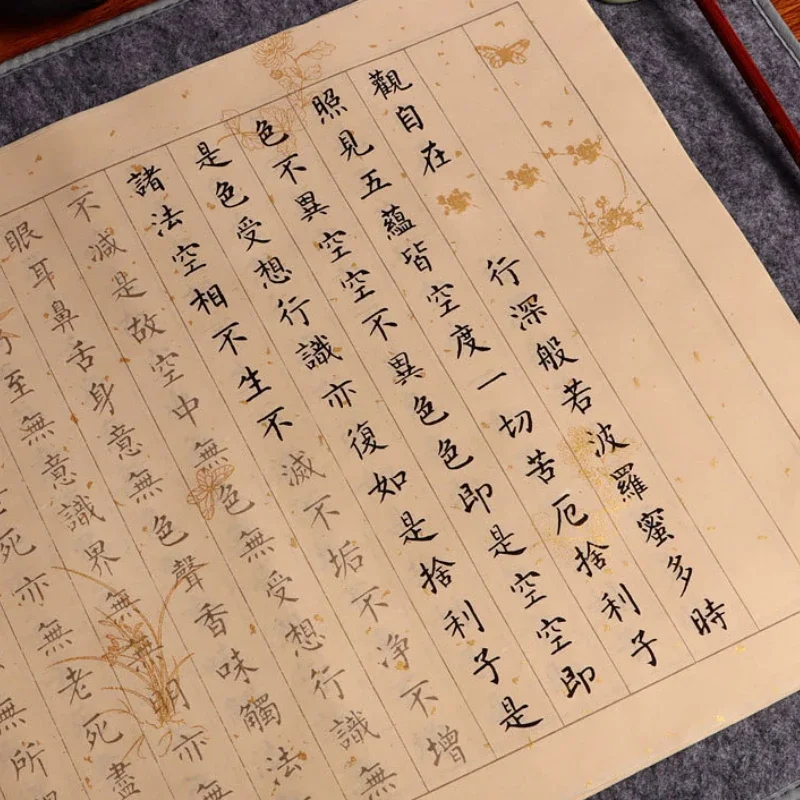 觀自在 行深般若波羅蜜多時
照見五蘊皆空度一切苦厄捨利子
色不異空空不異色色即是空空即
是色受想行識亦復如是捨利子是
諸法空相不生不滅不垢不净不增
不减是故空中無色無受想行識無
眼耳鼻舌身意無色聲香味觸法
至無意識界無無明亦無
死亦無老死盡
無所